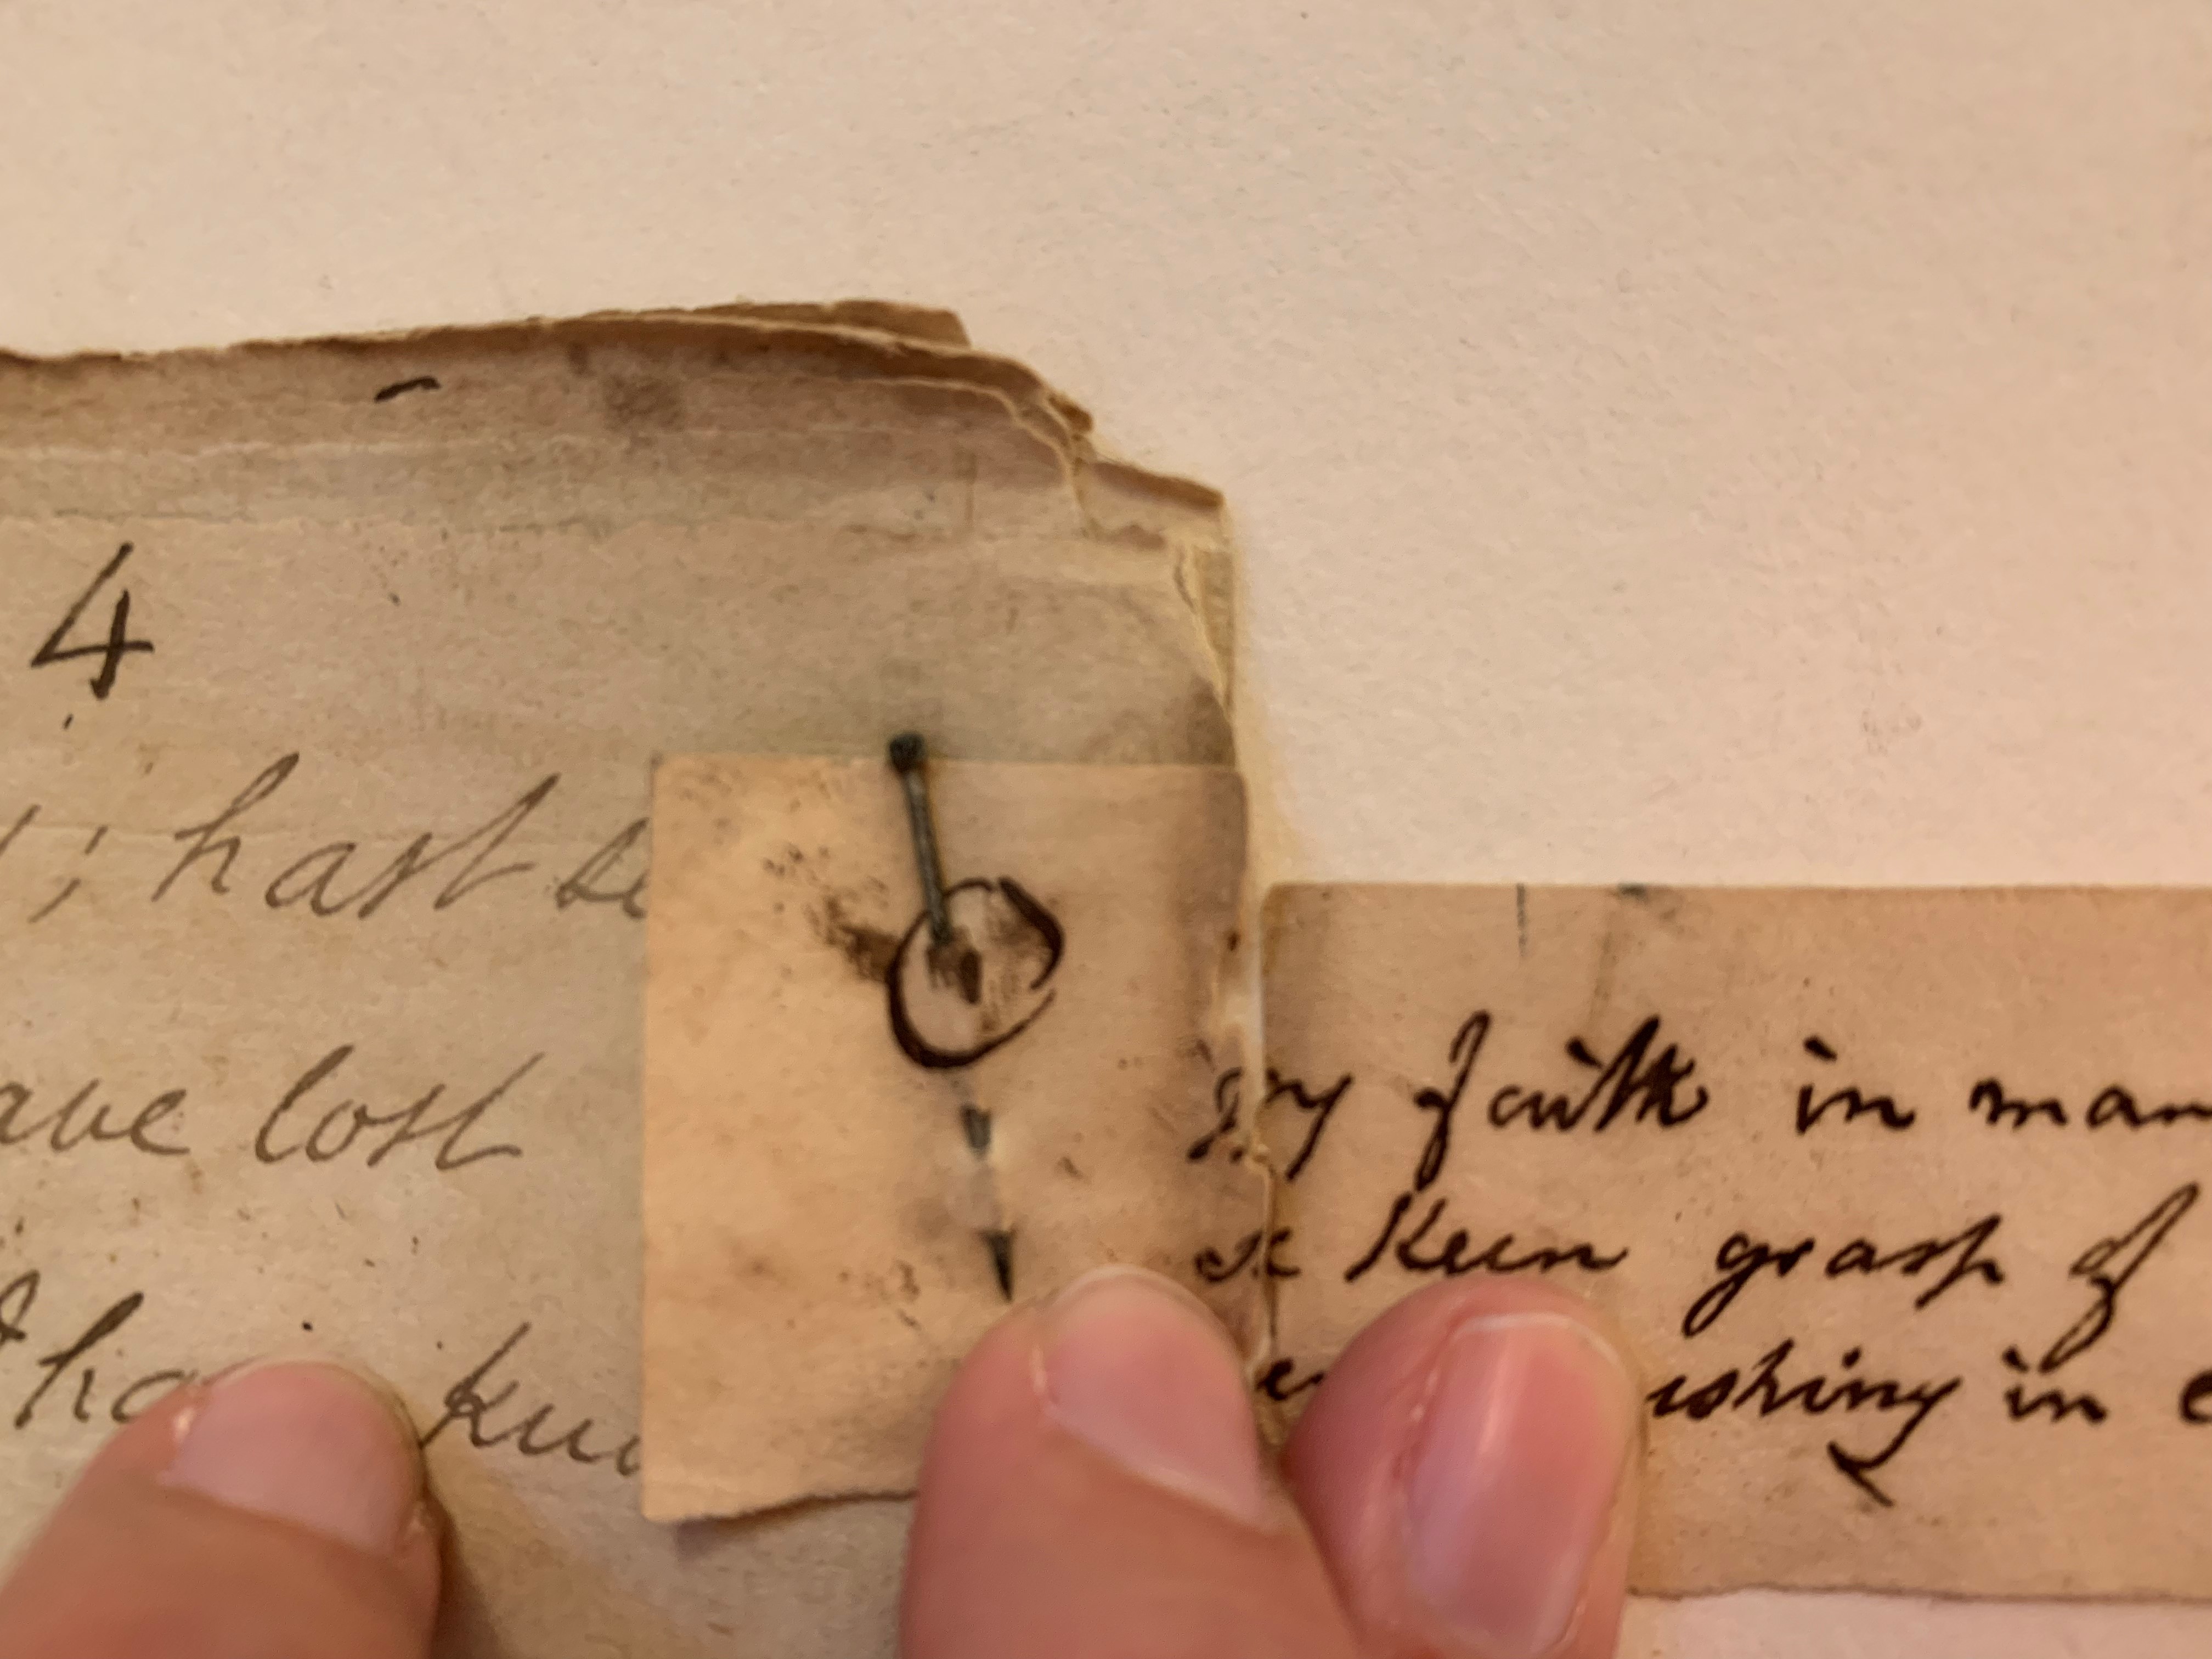 4
; hast
ave lost
kn
faith in man
keen grasp of
ishing in